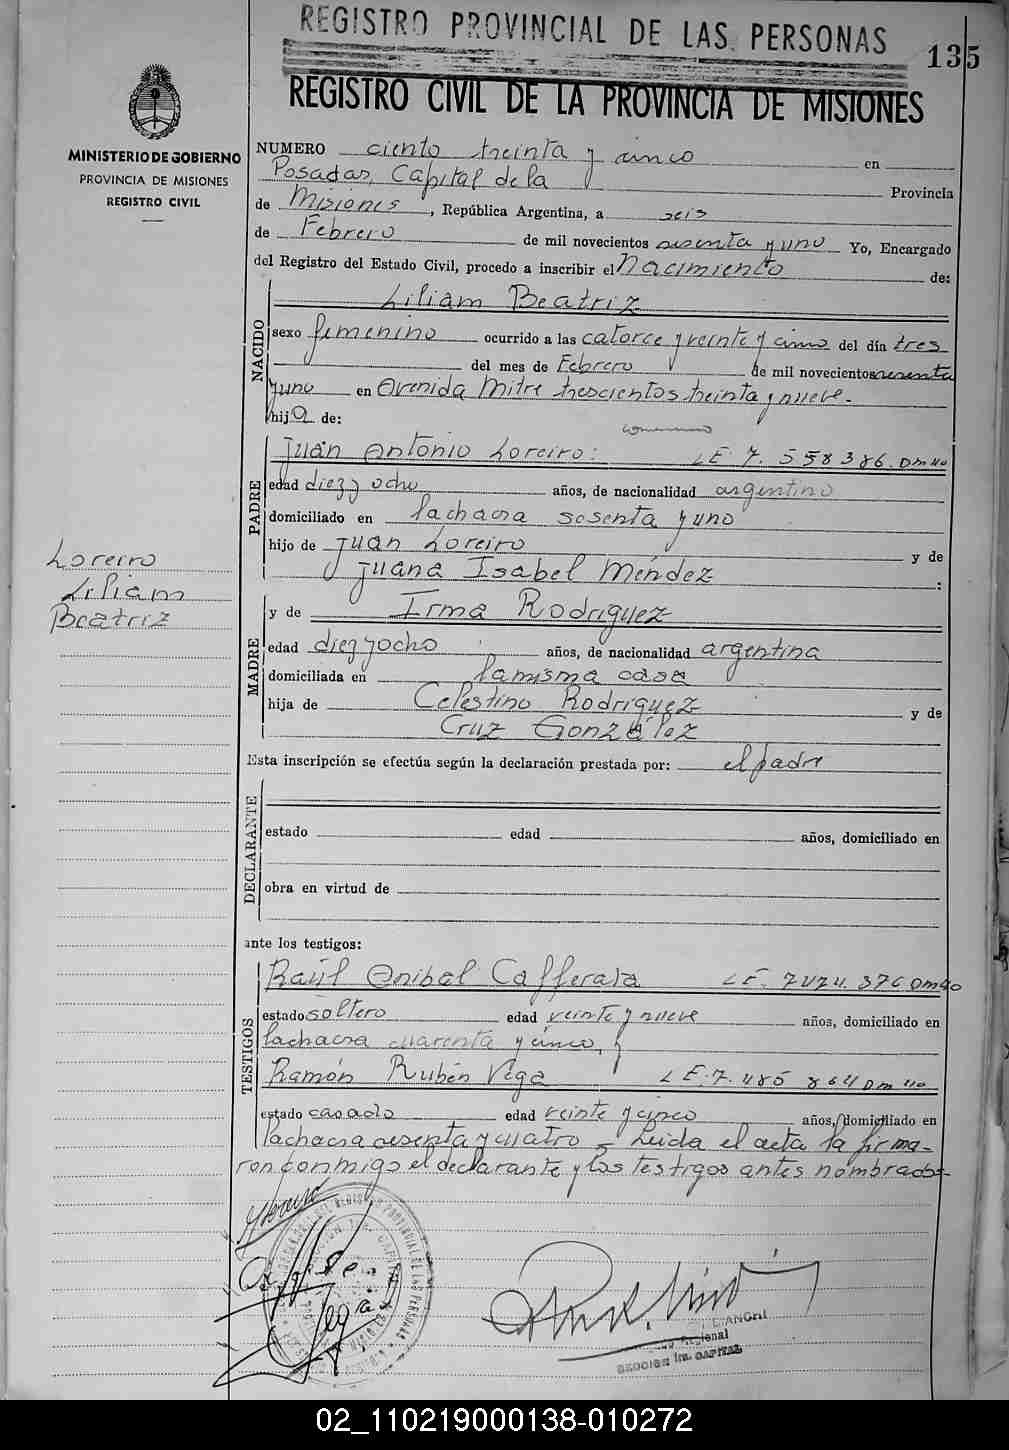 REGISTRO PROVINCIAL DE LAS PERSONAS
135
REGISTRO CIVIL DE LA PROVINCIA DE MISIONES
MINISTERIO DE GOBIERNO
PROVINCIA DE MISIONES
REGISTRO CIVIL
NUMERO ciento treinta y cinco en
Posadas, Capital de la Provincia
de Misiones, República Argentina, a seis
de Febrero de mil novecientos sesenta y uno Yo, Encargado
del Registro del Estado Civil, procedo a inscribir el Nacimiento de:
NACIDO
Liliam Beatriz
sexo femenino ocurrido a las catorce y veinte y cinco del día tres
del mes de Febrero de mil novecientos sesenta
y uno en Avenida Mitre trescientos treinta y nueve.
hija de:
PADRE
Juán Antonio Loreiro: LE 7.558386. DM 40
edad diez y ocho años, de nacionalidad argentino
domiciliado en lachacra sesenta y uno
hijo de Juan Loreiro y de
Juana Isabel Méndez :
Loreiro
Liliam
Beatriz
MADRE
y de Irma Rodríguez
edad diez y ocho años, de nacionalidad argentina
domiciliada en lamisma casa
hija de Celestino Rodríguez y de
Cruz González
Esta inscripción se efectúa según la declaración prestada por: el padre
DECLARANTE
estado edad años, domiciliado en
obra en virtud de
ante los testigos:
TESTIGOS
Raúl Anibal Cafferata LE. DM 40
estado soltero edad veinte y nueve años, domiciliado en
lachacra cuarenta y cinco, y
Ramón Rubén Vega LE. 7.485 864 DM 40
estado casado edad veinte y cinco años, domiciliado en
lachacra sesenta y cuatro = Leida el acta la firma-
ron conmigo el declarante y los testigos antes nombrados-
Vega
Regional
SECCION 1ra. CAPITAL
02_110219000138-010272